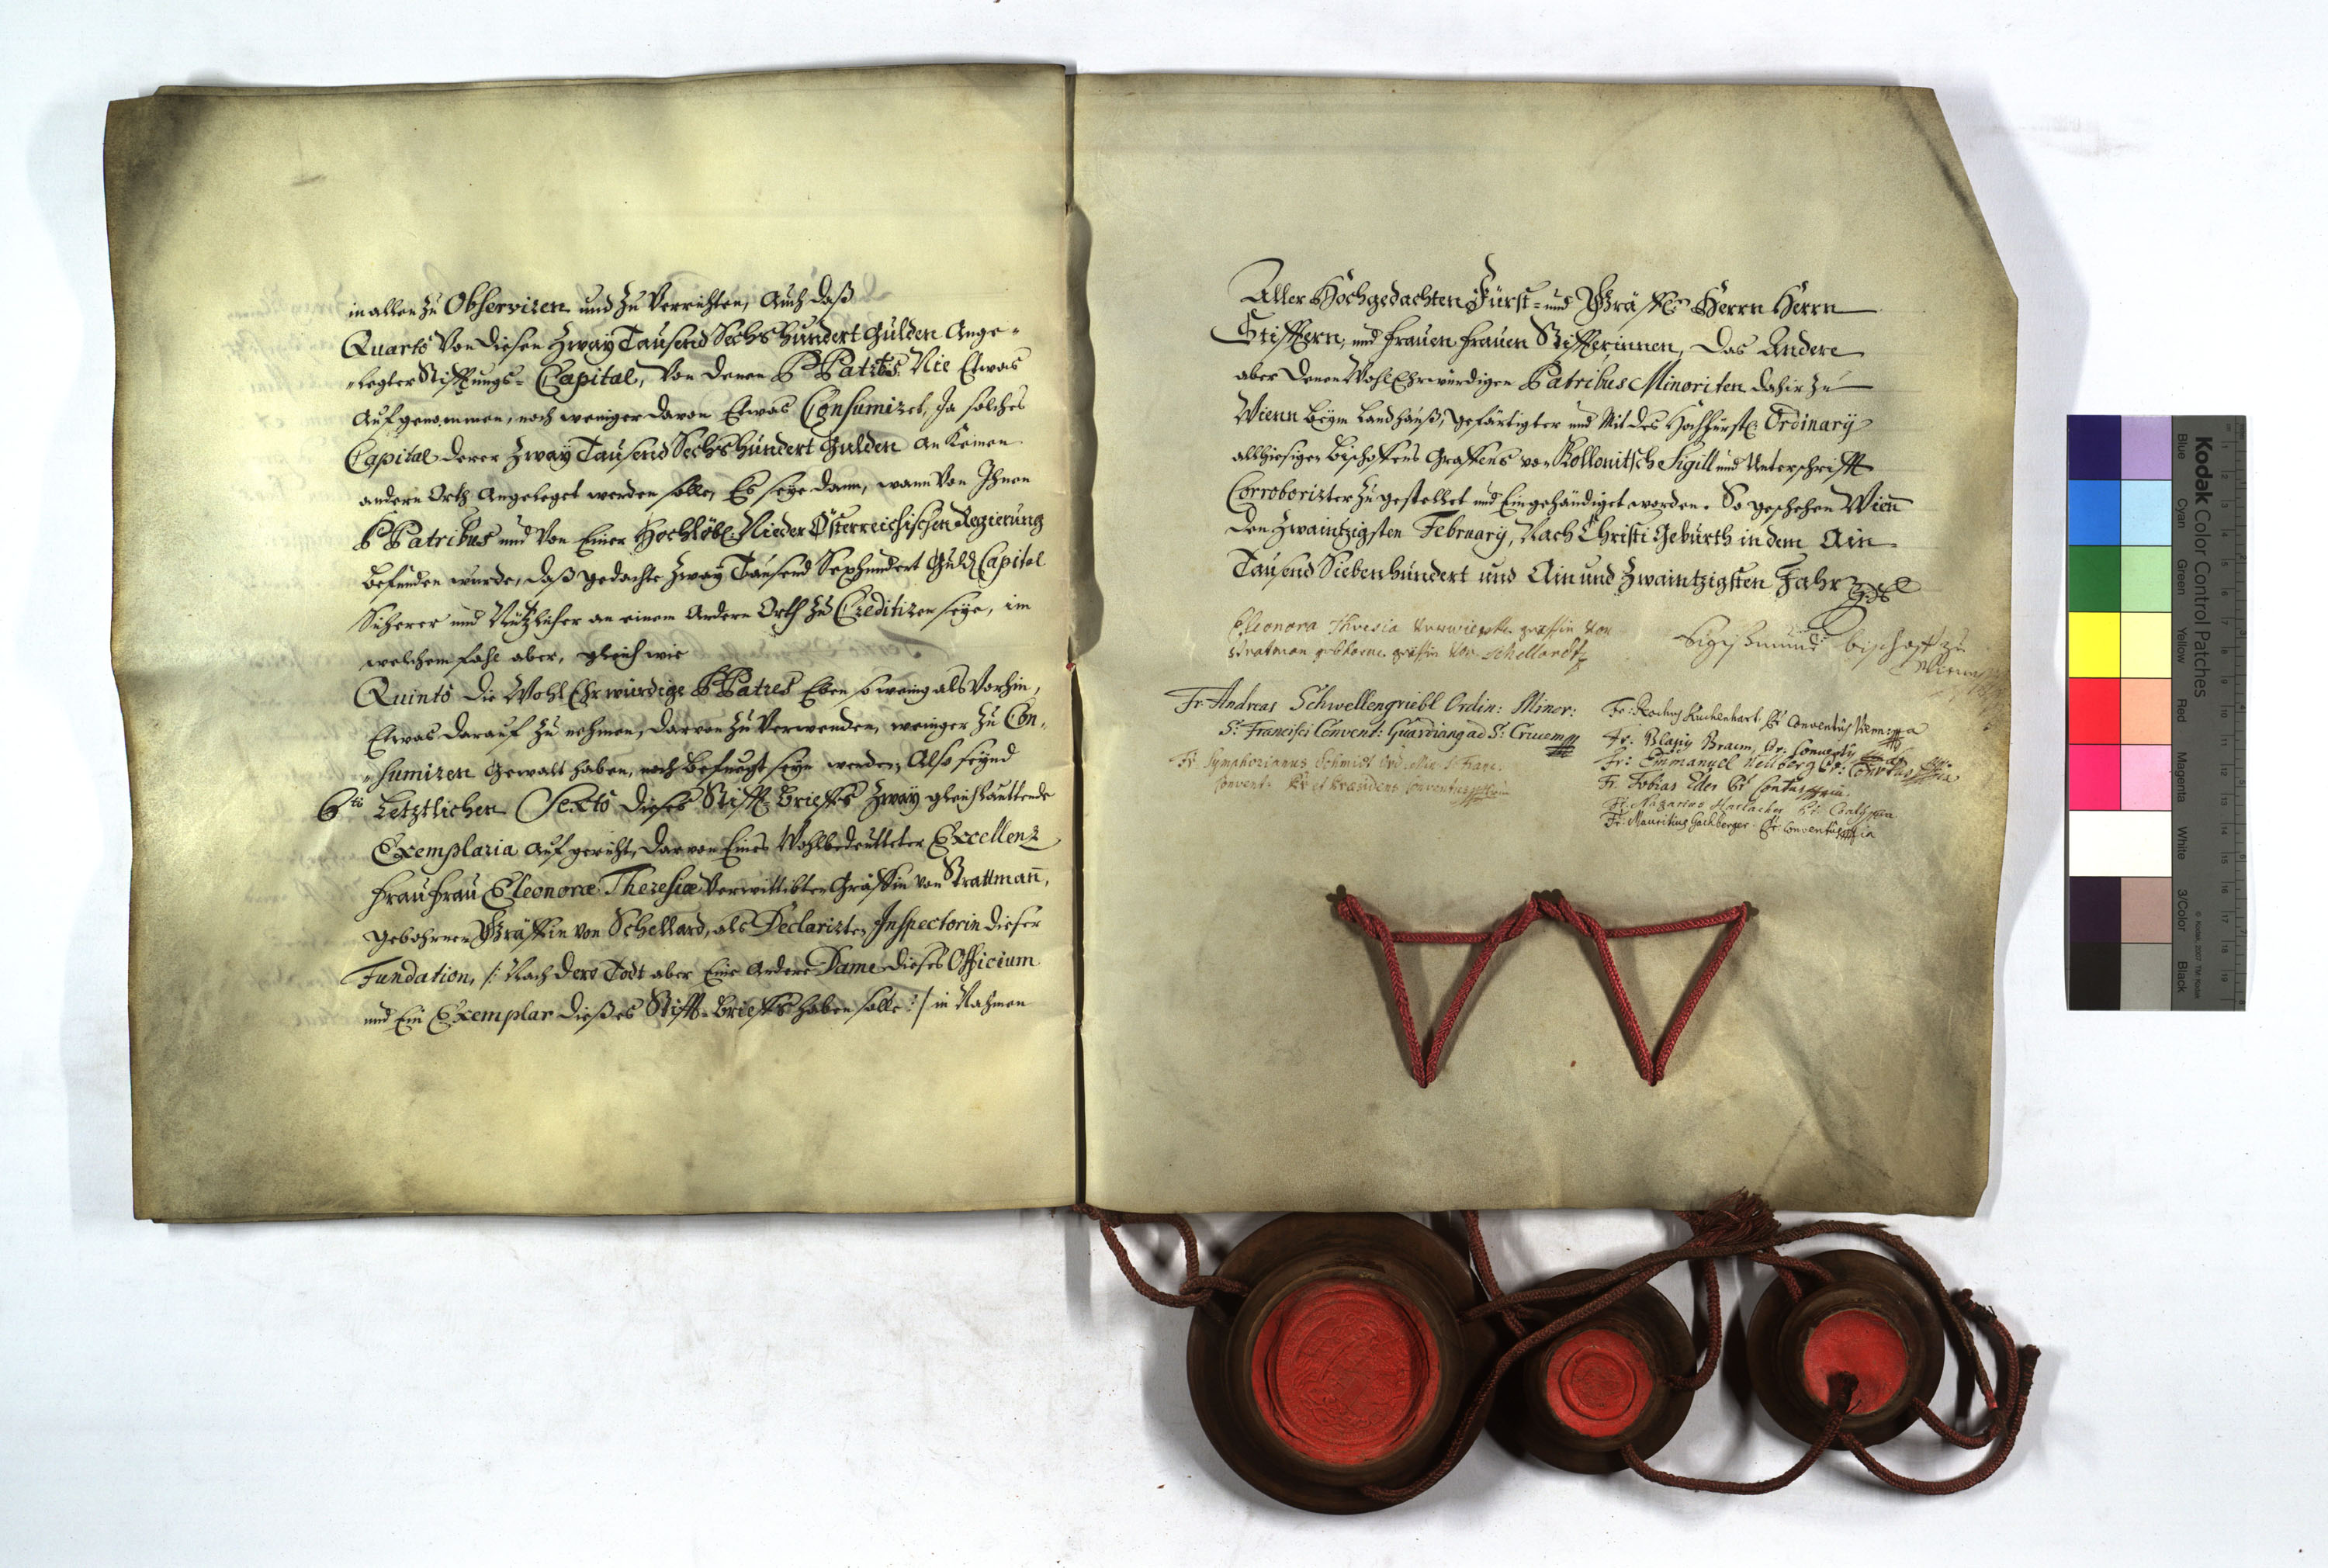 in allen zu Observiren und zu Verrichten, Auch daß
Quartò Von diesen Zway Tausend Sechs hundert Gulden Ange-
-legter Stifftungs-Capital, Von denen P Patres Nie Etwas
Aufgenommen, noch weniger davon Etwas Consumiret, Ja solches
Capital derer Zway Tausend Sechs hundert Gulden an Keinen
andern Orth Angeleget werden solle, Es seye dann, wann Von Ihnen
P Patribus und Von Einer Hochlöbl: Nieder Österreichischen Regierung
befunden wurde, daß gedachte Zway Tausend Sexhundert Guld: Capital
Sicherer und Nutzlicher an einem Andern Orth zu Creditiren seye, im
welchem fahl aber, gleich wie
Quintò die Wohl Ehrwürdige P Patres Eben so wenig als Vorhin,
Etwas darauf zu nehmen, darvon zu Verwenden, weniger zu Con-
-sumiren Gewalt haben, noch befuegt seyn werden, Also seynd
6tò Letztlichen Sextò dieses Stifft-Brieffs Zway gleichlauttende
Exemplaria aufgericht, darvon Eines Wohlbedeutteter Excellenz
Frau Frau Eleonoræ Theresiæ Verwittibten Gräffin von Strattmann,
gebohrner Gräffin von Schellard, als Declarirten Inspectorin dieser
Fundation, /: Nach dero Todt aber Eine andere Dame dieses Officium
und Ein Exemplar dieses Stifft-Brieffs haben solle :/ in Nahmen
Aller Hochgedachten Fürst- und Gräffl: Herrn Herrn
Stifftern, und Frauen Frauen Stiffterinnen, das Andere
aber denen Wohl Ehrwürdigen Patribus Minoriten dahir zu
Wienn beym Landhauß, gefärtigter und Mit des Hochfürstl: Ordinary
allhiesigen Bischoffens Graffens von Kollonitsch Sigill und Unterschrifft
Corroborirter zu gestellet und Eingehändiget worden. So geschehen Wienn
den Zwaintzigsten February, Nach Christi Geburth in dem Ain
Tausend Siebenhundert und Ain und Zwaintzigsten Jahr
Eleonora Theresia verwittibte gräffin von
Stratman gebohrne gräffin von Schellardt
Sigismund bischoff zu
Wienn
Fr. Andreas Schwellengriebl Ordin: Minor:
S: Francisci Convent: Guardian ad S: Crucem
Fr. Symphorianus Schmidt Ord. Min. S. Franc.
Convent.
Fr: Rochus Kuchenhart Conventus
Fr: Blasius Braun, Conventus
Fr: Emmanuel Neuberg
Fr. Tobias Eder
Fr. Nazarius Harlacher
Fr: Mauritius Gachberger Conventus
Kodak Color Control Patches
Blue Cyan Green Yellow Red Magenta White 3/Color Black